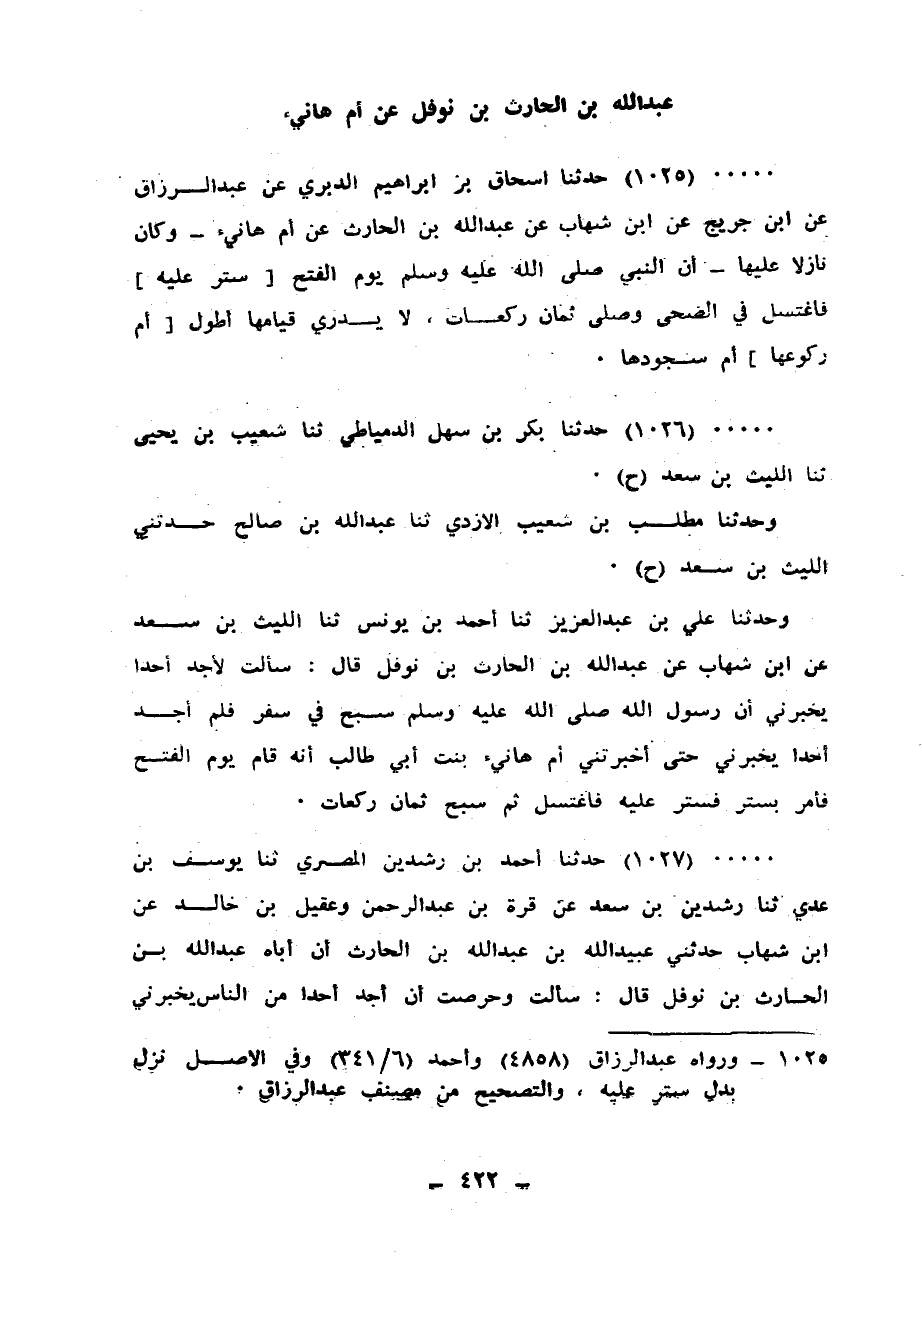 عبدالله بن الحارث بن نوفل عن أم هانيء
٠٠٠٠٠ (١٠٢٥) حدثنا اسحاق بن ابراهيم الدبري عن عبدالرزاق
عن ابن جريج عن ابن شهاب عن عبدالله بن الحارث عن أم هانيء ـ وكان
نازلا عليها ـ أن النبي صلى الله عليه وسلم يوم الفتح [ ستر عليه ]
فاغتسل في الضحى وصلى ثمان ركعات ، لا يدري قيامها أطول [ أم
ركوعها ] أم سجودها ٠
٠٠٠٠٠ (١٠٢٦) حدثنا بكر بن سهل الدمياطي ثنا شعيب بن يحيى
ثنا الليث بن سعد (ح) ٠
وحدثنا مطلب بن شعيب الازدي ثنا عبدالله بن صالح حدثني
الليث بن سعد (ح) ٠
وحدثنا علي بن عبدالعزيز ثنا أحمد بن يونس ثنا الليث بن سعد
عن ابن شهاب عن عبدالله بن الحارث بن نوفل قال : سألت لأجد أحدا
يخبرني أن رسول الله صلى الله عليه وسلم سبح في سفر فلم أجد
أحدا يخبرني حتى أخبرتني أم هانيء بنت أبي طالب أنه قام يوم الفتح
فأمر بستر فستر عليه فاغتسل ثم سبح ثمان ركعات ٠
٠٠٠٠٠ (١٠٢٧) حدثنا أحمد بن رشدين المصري ثنا يوسف بن
عدي ثنا رشدين بن سعد عن قرة بن عبدالرحمن وعقيل بن خالد عن
ابن شهاب حدثني عبيدالله بن عبدالله بن الحارث أن أباه عبدالله بن
الحارث بن نوفل قال : سألت وحرصت أن أجد أحدا من الناس يخبرني
١٠٢٥ ـ ورواه عبدالرزاق (٤٨٥٨) وأحمد (٣٤١/٦) وفي الاصل نزل
بدل ستر عليه ، والتصحيح من مصنف عبدالرزاق ٠
ـ ٤٢٢ ـ